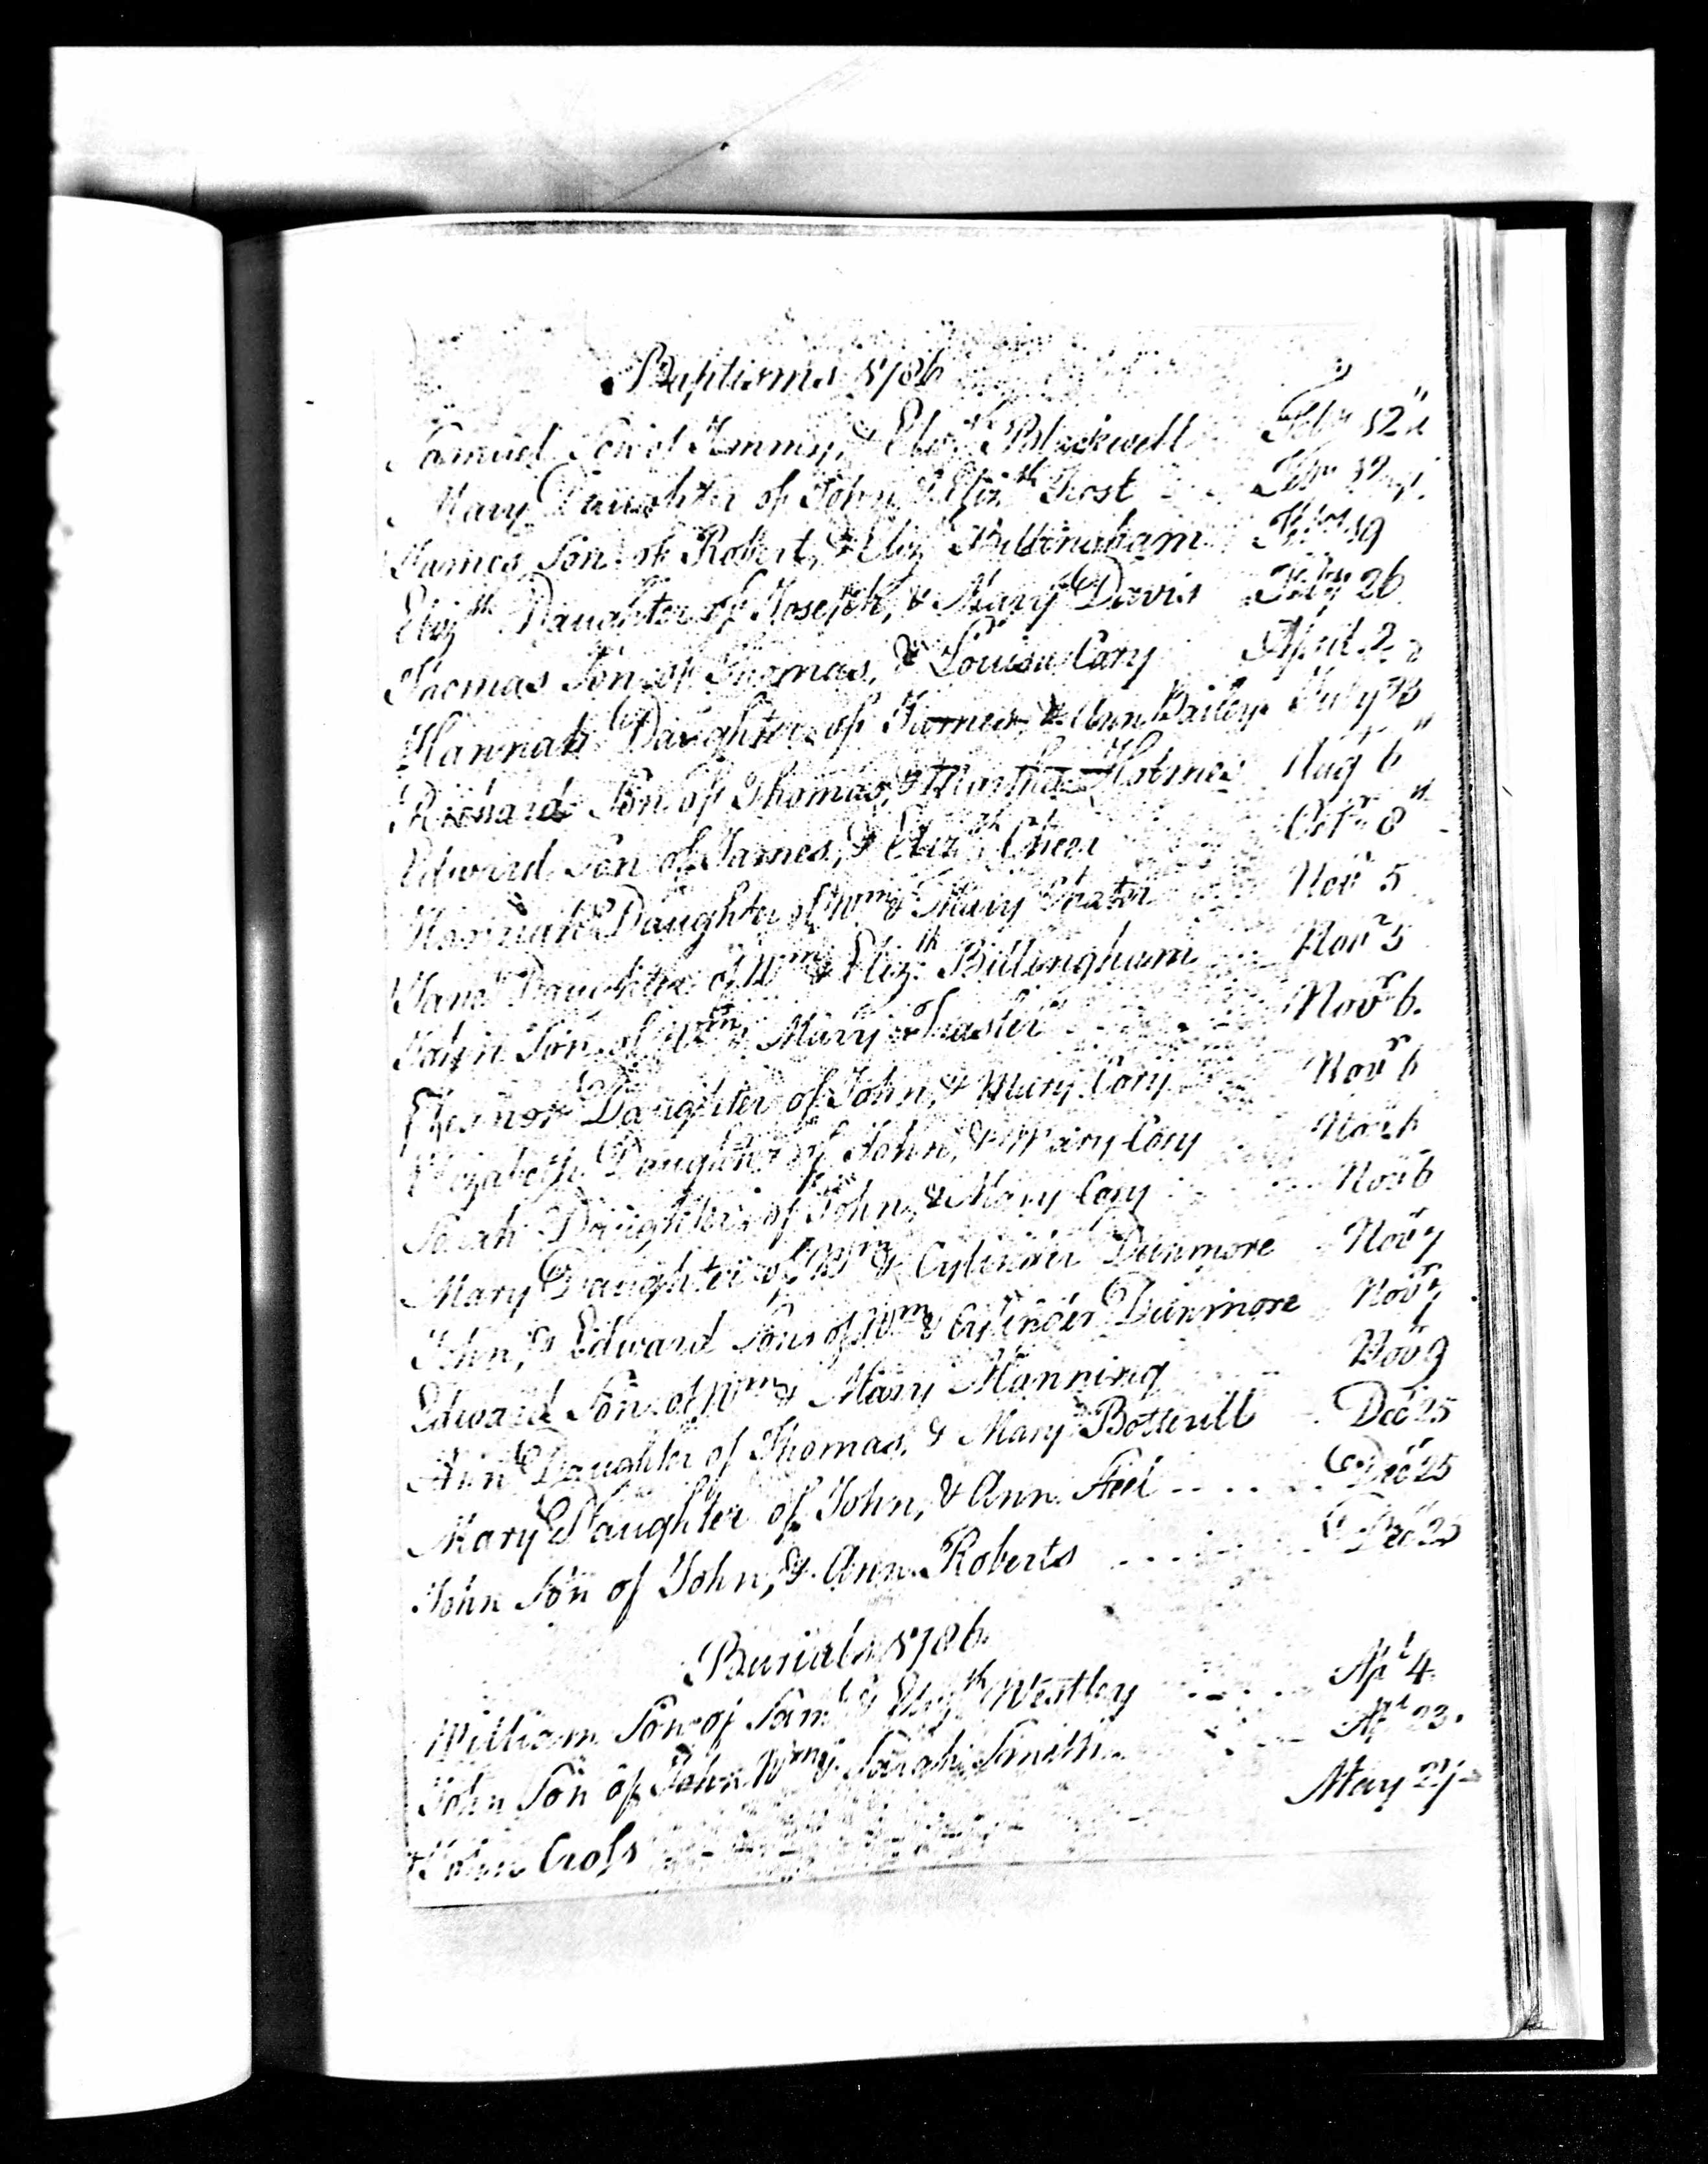 Baptisms 1786
Samuel Son of Jemmy, & Eliz.th Blackwell Feb.y 12
Mary Daughter of John & Eliz.th Frost Feb.y 12
James Son of Robert, & Eliz Billingham Feb.y 19
Eliz.th Daughter of Joseph, & Mary Davis Feb.y 26
Thomas Son of Thomas, & Louisa Cory April 2
Hannah Daughter of James & Ann Bailey July 23
Richard Son of Thomas, & Martha Holmes Aug 6
Edward Son of James, & Eliz.th Cheer Oct.r 8
Hannah Daughter of W.m & Mary Nov.r 5
Jane Daughter of W.m & Eliz.th Billingham Nov.r 5
John Son of W.m & Mary Nov.r 6.
Eleanor Daughter of John, & Mary Cory Nov.r 6
Elizabeth Daughter of John, & Mary Cory Nov.r 6
Sarah Daughter of John, & Mary Cory Nov.r 6
Mary Daughter of W.m & Cylinder Dunmore Nov.r 7
John, & Edward Sons of W.m & Cylinder Dunmore Nov.r 7
Edward Son of W.m & Mary Manning Nov.r 9
Ann Daughter of Thomas, & Mary Botterill Dec.r 25
Mary Daughter of John, & Ann Dec.r 25
John Son of John, & Ann Roberts Dec.r 25
Burials 1786.
William Son of Sam.l & Eliz.th Westley Ap.l 4
John Son of John W.m & Sarah Smith Ap.l 23.
John Cross May 27